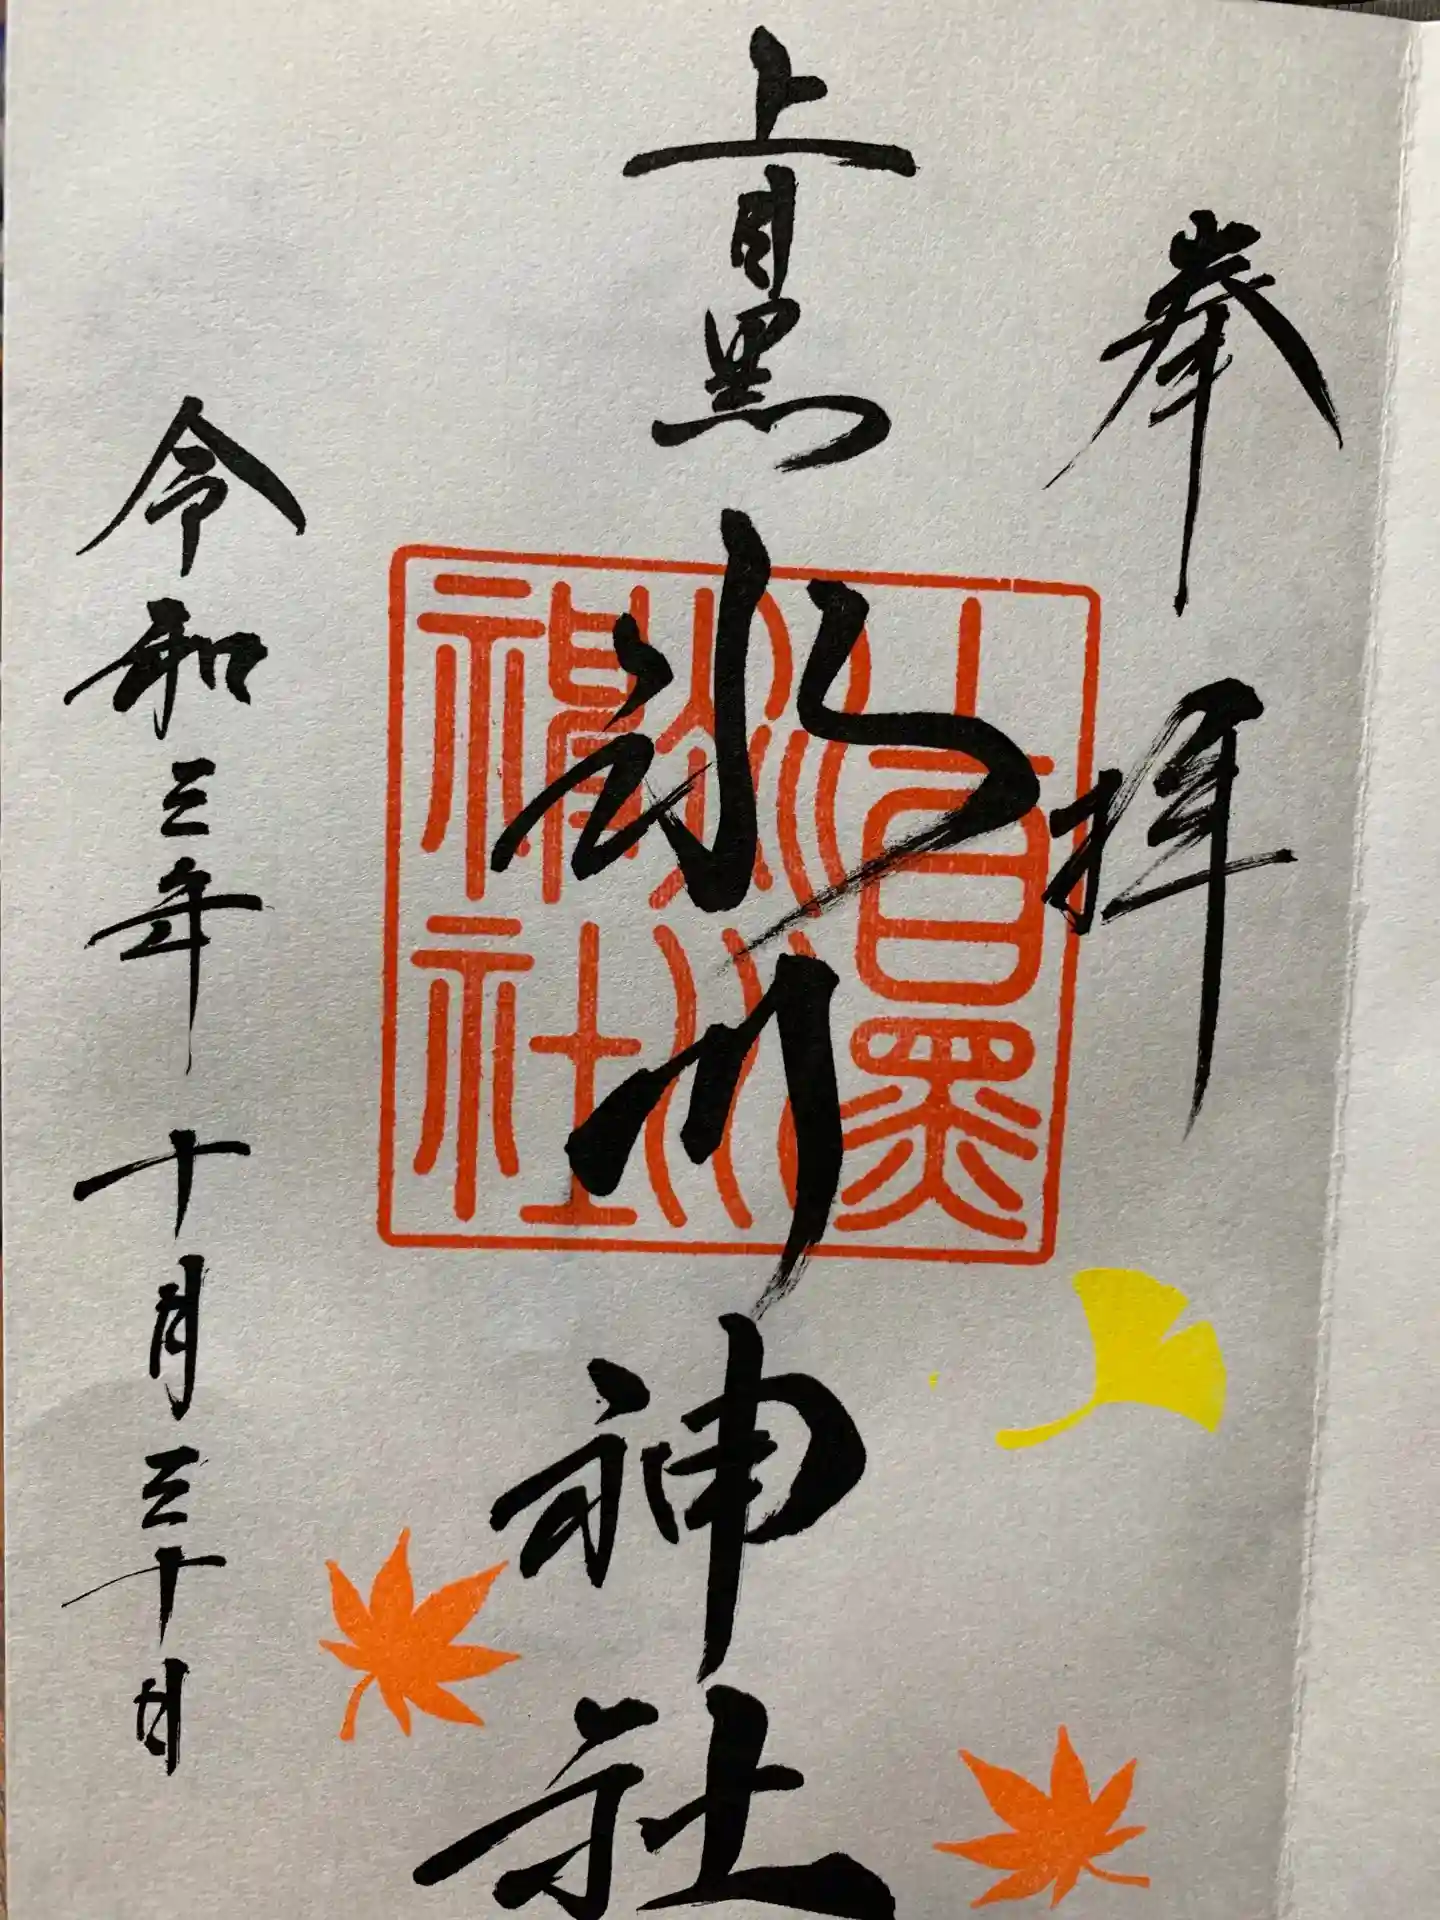 奉拝
上目黒氷川神社
上目黒
氷川
神社
令和三年十月三十日